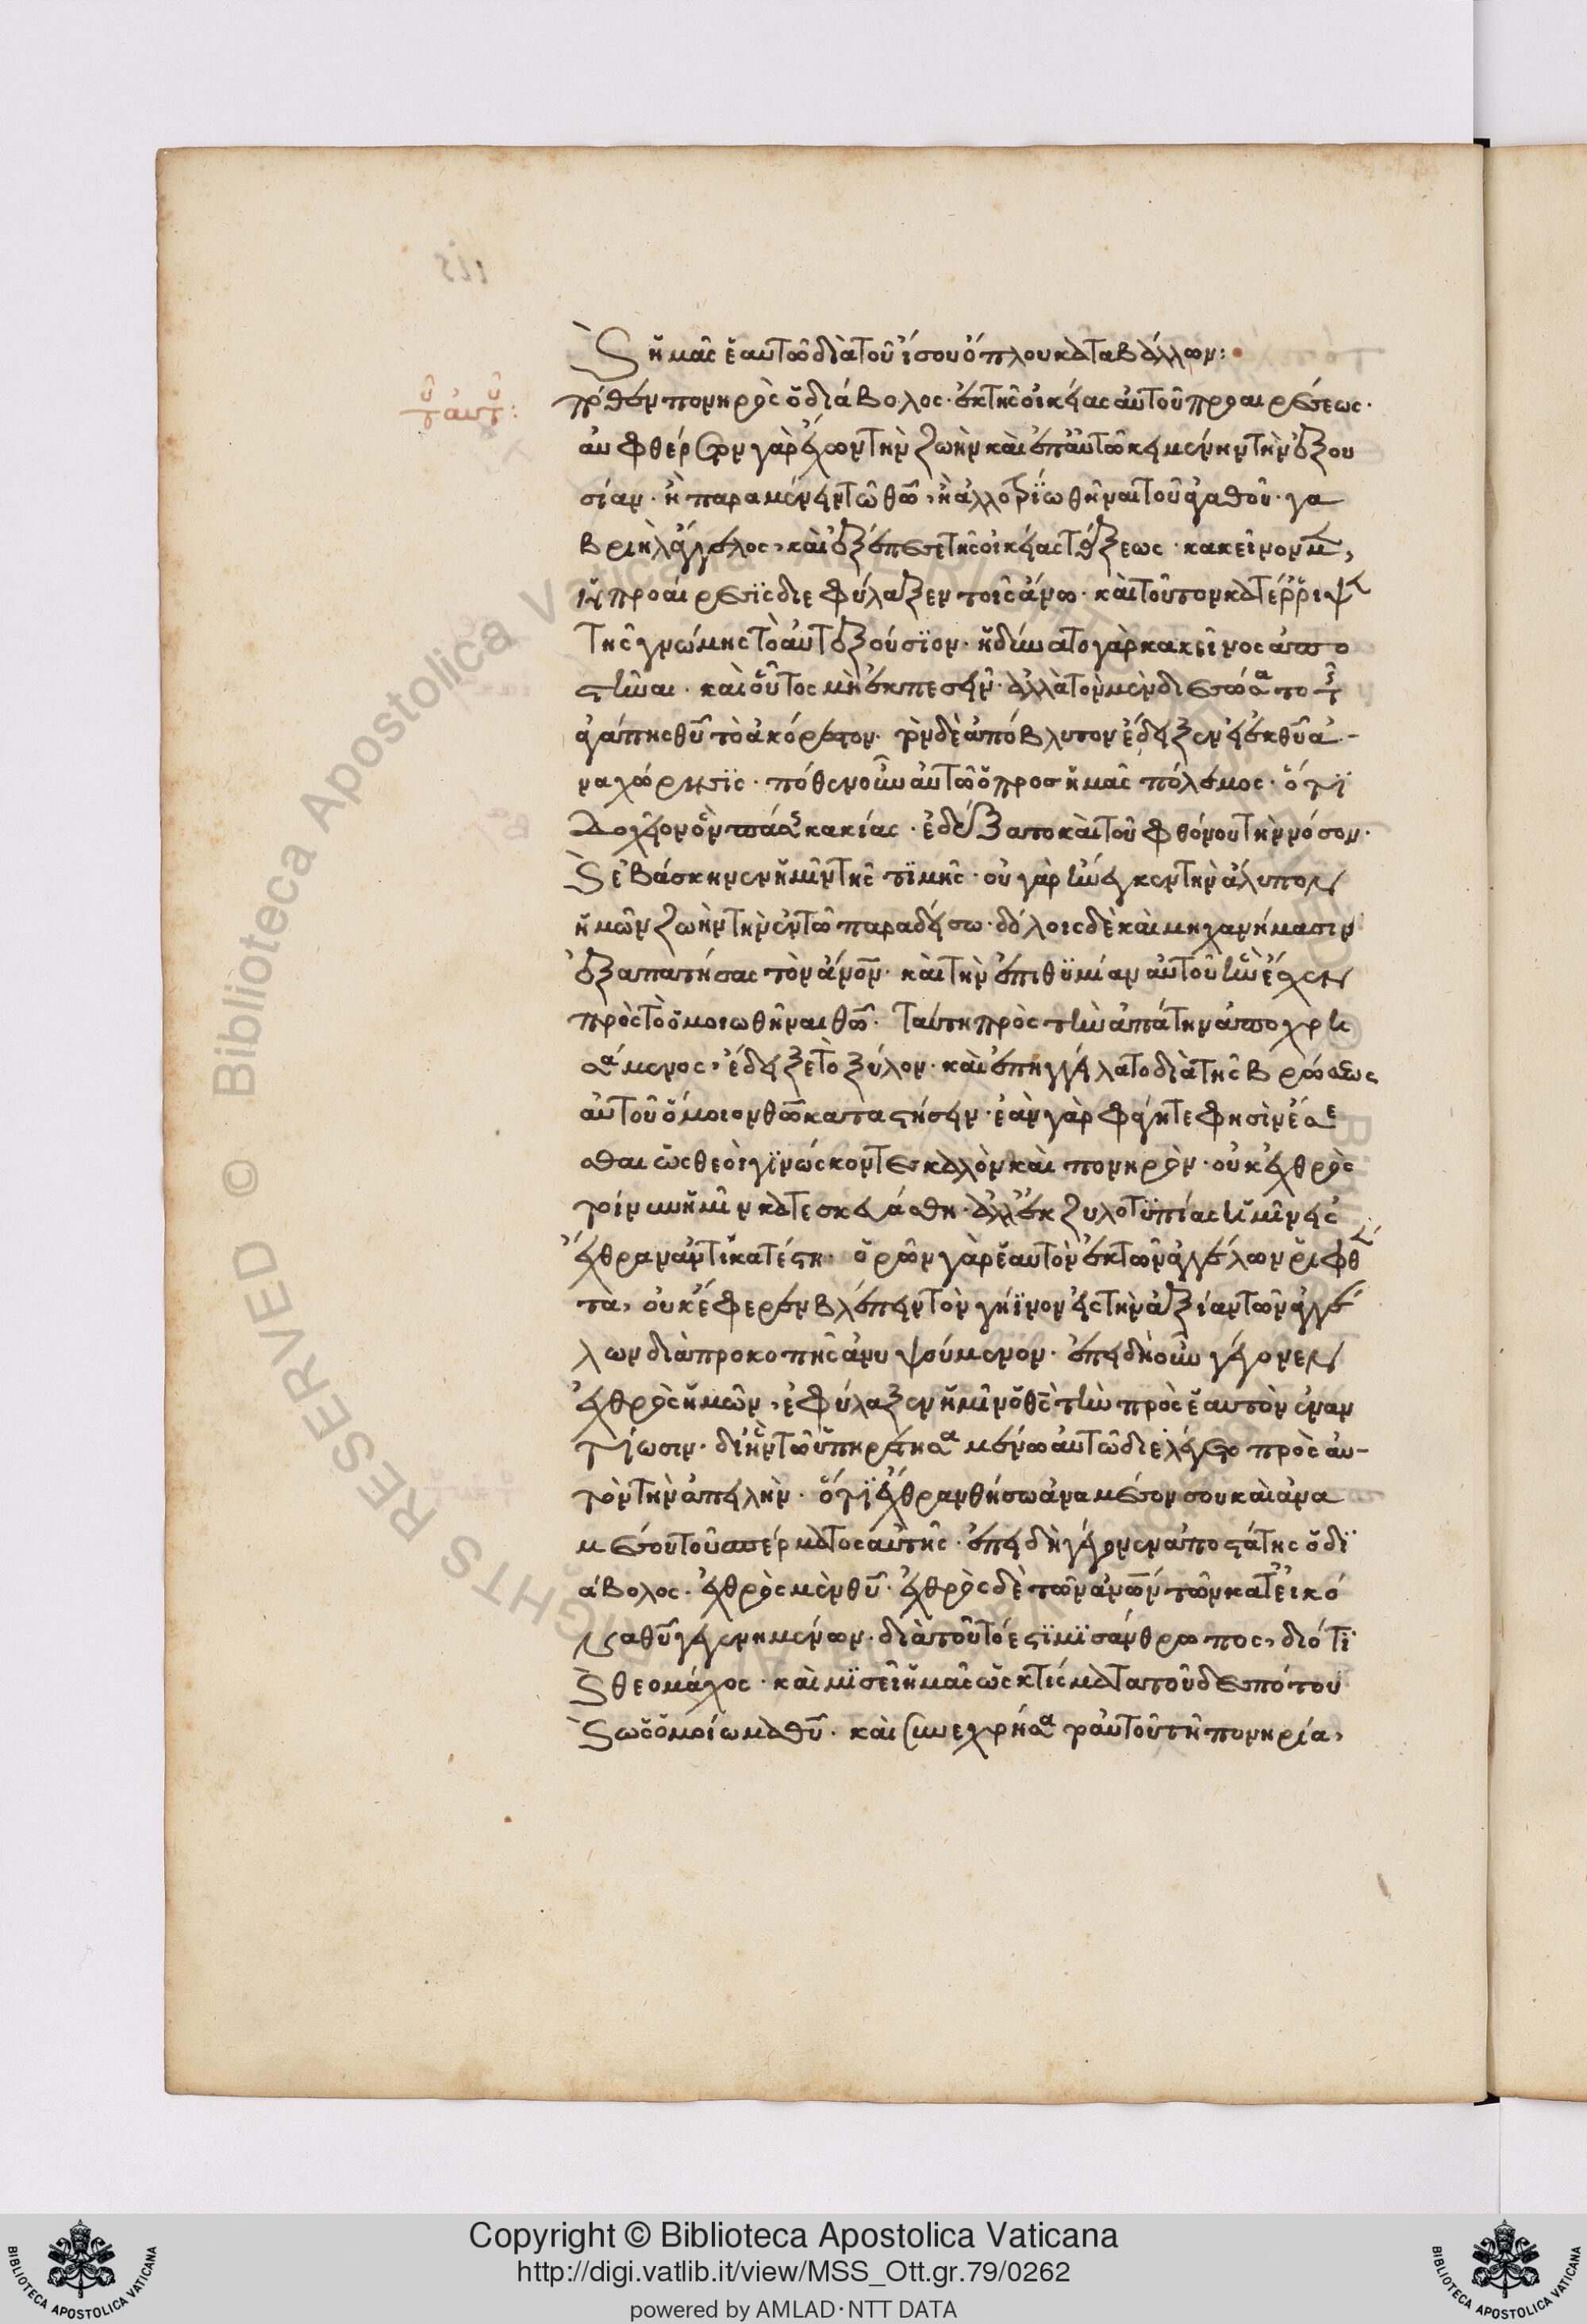 ϗ ἡμᾶς ἑαυτῶ διὰ τοῦ ἴσου ὅπλου καταβάλλων:
τοῦ αὐτοῦ:
πόθεν πονηρὸς ὁ διάβολος· ἐκ τῆς οἰκείας αὐτοῦ προαιρέσεως·
αὐθέραιτον γὰρ ἔχων τὴν ζωὴν καὶ ἐπ' αὐτῶ κειμένην τὴν ἐξου
σίαν· ἢ παραμένειν τῶ θῶ, ἢ ἀλλοτριωθῆναι τοῦ ἀγαθοῦ· γα
βριὴλ ἄγγελος, καὶ
ἡ προαίρεσις διεφύλαξεν τοῖς ἄνω· καὶ τοῦτον κατέρριψε
τῆς γνώμης τὸ αὐτεξούσιον· ἠδύνατο γὰρ κἀκεῖνος ἀπο
στῆναι· καὶ οὗτος μὴ ἐκπεσεῖν· ἀλλὰ τὸν μὲν διέσωσα το τῆς
ἀγάπης θῦ τὸ ἀκόρεστον· τὸν δὲ ἀπόβλυτον ἔδειξεν ἡ ἐκ θῦ ἀ-
ναχώρησις· πόθεν οὖν αὐτῶ ὁ προσ ἡμᾶς πόλεμος· ὅτι
δοχεῖον ὢν πάσης κακίας· ἐδέξατο καὶ τοῦ φθόνου τὴν νόσον·
ϗ ἐβάσκηνεν ἡμῖν τῆς τιμῆς· οὐ γὰρ ἤνεγκεν τὴν ἄλυπον
ἡμῶν ζωὴν τὴν ἐν τῶ παραδείσω· δόλοις δὲ καὶ μηχανήμασιν
ἐξαπατήσας τὸν ἄνον· καὶ τὴν ἐπιθυμίαν αὐτοῦ ἣν ἔχεν
πρὸς τὸ ὁμοιωθῆναι θῶ· ταύτη πρὸς τὴν ἀπάτην ἀποχρη
σάμενος, ἔδειξε τὸ ξύλον· καὶ ἐπηγγέλατο διὰ τῆς βρώσεως
αὐτοῦ ὅμοιον θῶ καταστήσειν· ἐὰν γὰρ φάγητε φησὶν ἔσε
σθαι ὡς θεοὶ γινώσκοντες καλὸν καὶ πονηρὸν· οὐκ ἐχθρὸς
τοίνυν ἡμῖν κατεσκευάσθη· ἀλλ' ἐκ ζυλοτυπίας ἡμῖν εἰς
ἔχθραν ἀντικατέστη· ὁρῶν γὰρ ἑαυτὸν ἐκ τῶν ἀγγέλων ῥιφθέν
τα, οὐκ ἔφερεν βλέπειν τὸν γήινον εἰς τὴν ἀξίαν τῶν ἀγγέ
λων διὰ προκοπῆς ἀνυψούμενον· ἐπειδὴ οὖν γέγονεν
ἐχθρὸς ἡμῶν, ἐφύλαξεν ἡμῖν ὁ θς τὴν πρὸς ἑαυτὸν ἐναν
τίωσιν· δι' ἣν τῶ ὑπηρετησαμένω αὐτῶ διελέγετο πρὸς αὐ-
τὸν τὴν ἀπειλὴν· ὅτι ἔχθραν θήσω ἀνα μέσον σου καὶ ἀνα
μέσου τοῦ σπέρματος αὐτῆς· ἐπειδὴ γέγονεν ἀποστάτης ὁ δι
άβολος· ἐχθρὸς μὲν θῦ· ἐχθρὸς δὲ τῶν ἀνων τῶν κατ' εἰκό
να θῦ γεγενημένων· διὰ τοῦτό ἐστι μισάνθρωπος, διότι
ϗ θεομάχος· καὶ μισεῖ ἡμᾶς ὡς κτίσματα τοῦ δεσπότου
ϗ ὡς ὁμοίωμα θῦ· καὶ συνεχρήσατο αὐτοῦ τῆ πονηρία,
© Biblioteca Apostolica Vaticana ALL RIGHTS RESERVED
Copyright © Biblioteca Apostolica Vaticana
http://digi.vatlib.it/view/MSS_Ott.gr.79/0262
powered by AMLAD·NTT DATA
BIBLIOTECA APOSTOLICA VATICANA
BIBLIOTECA APOSTOLICA VATICANA